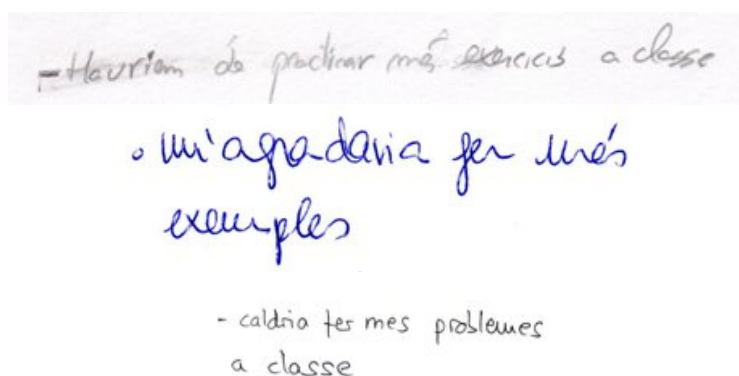 - Hauriem de practicar més exercicis a classe
• m'agradaria fer més
exemples
- caldria fer mes problemes
a classe